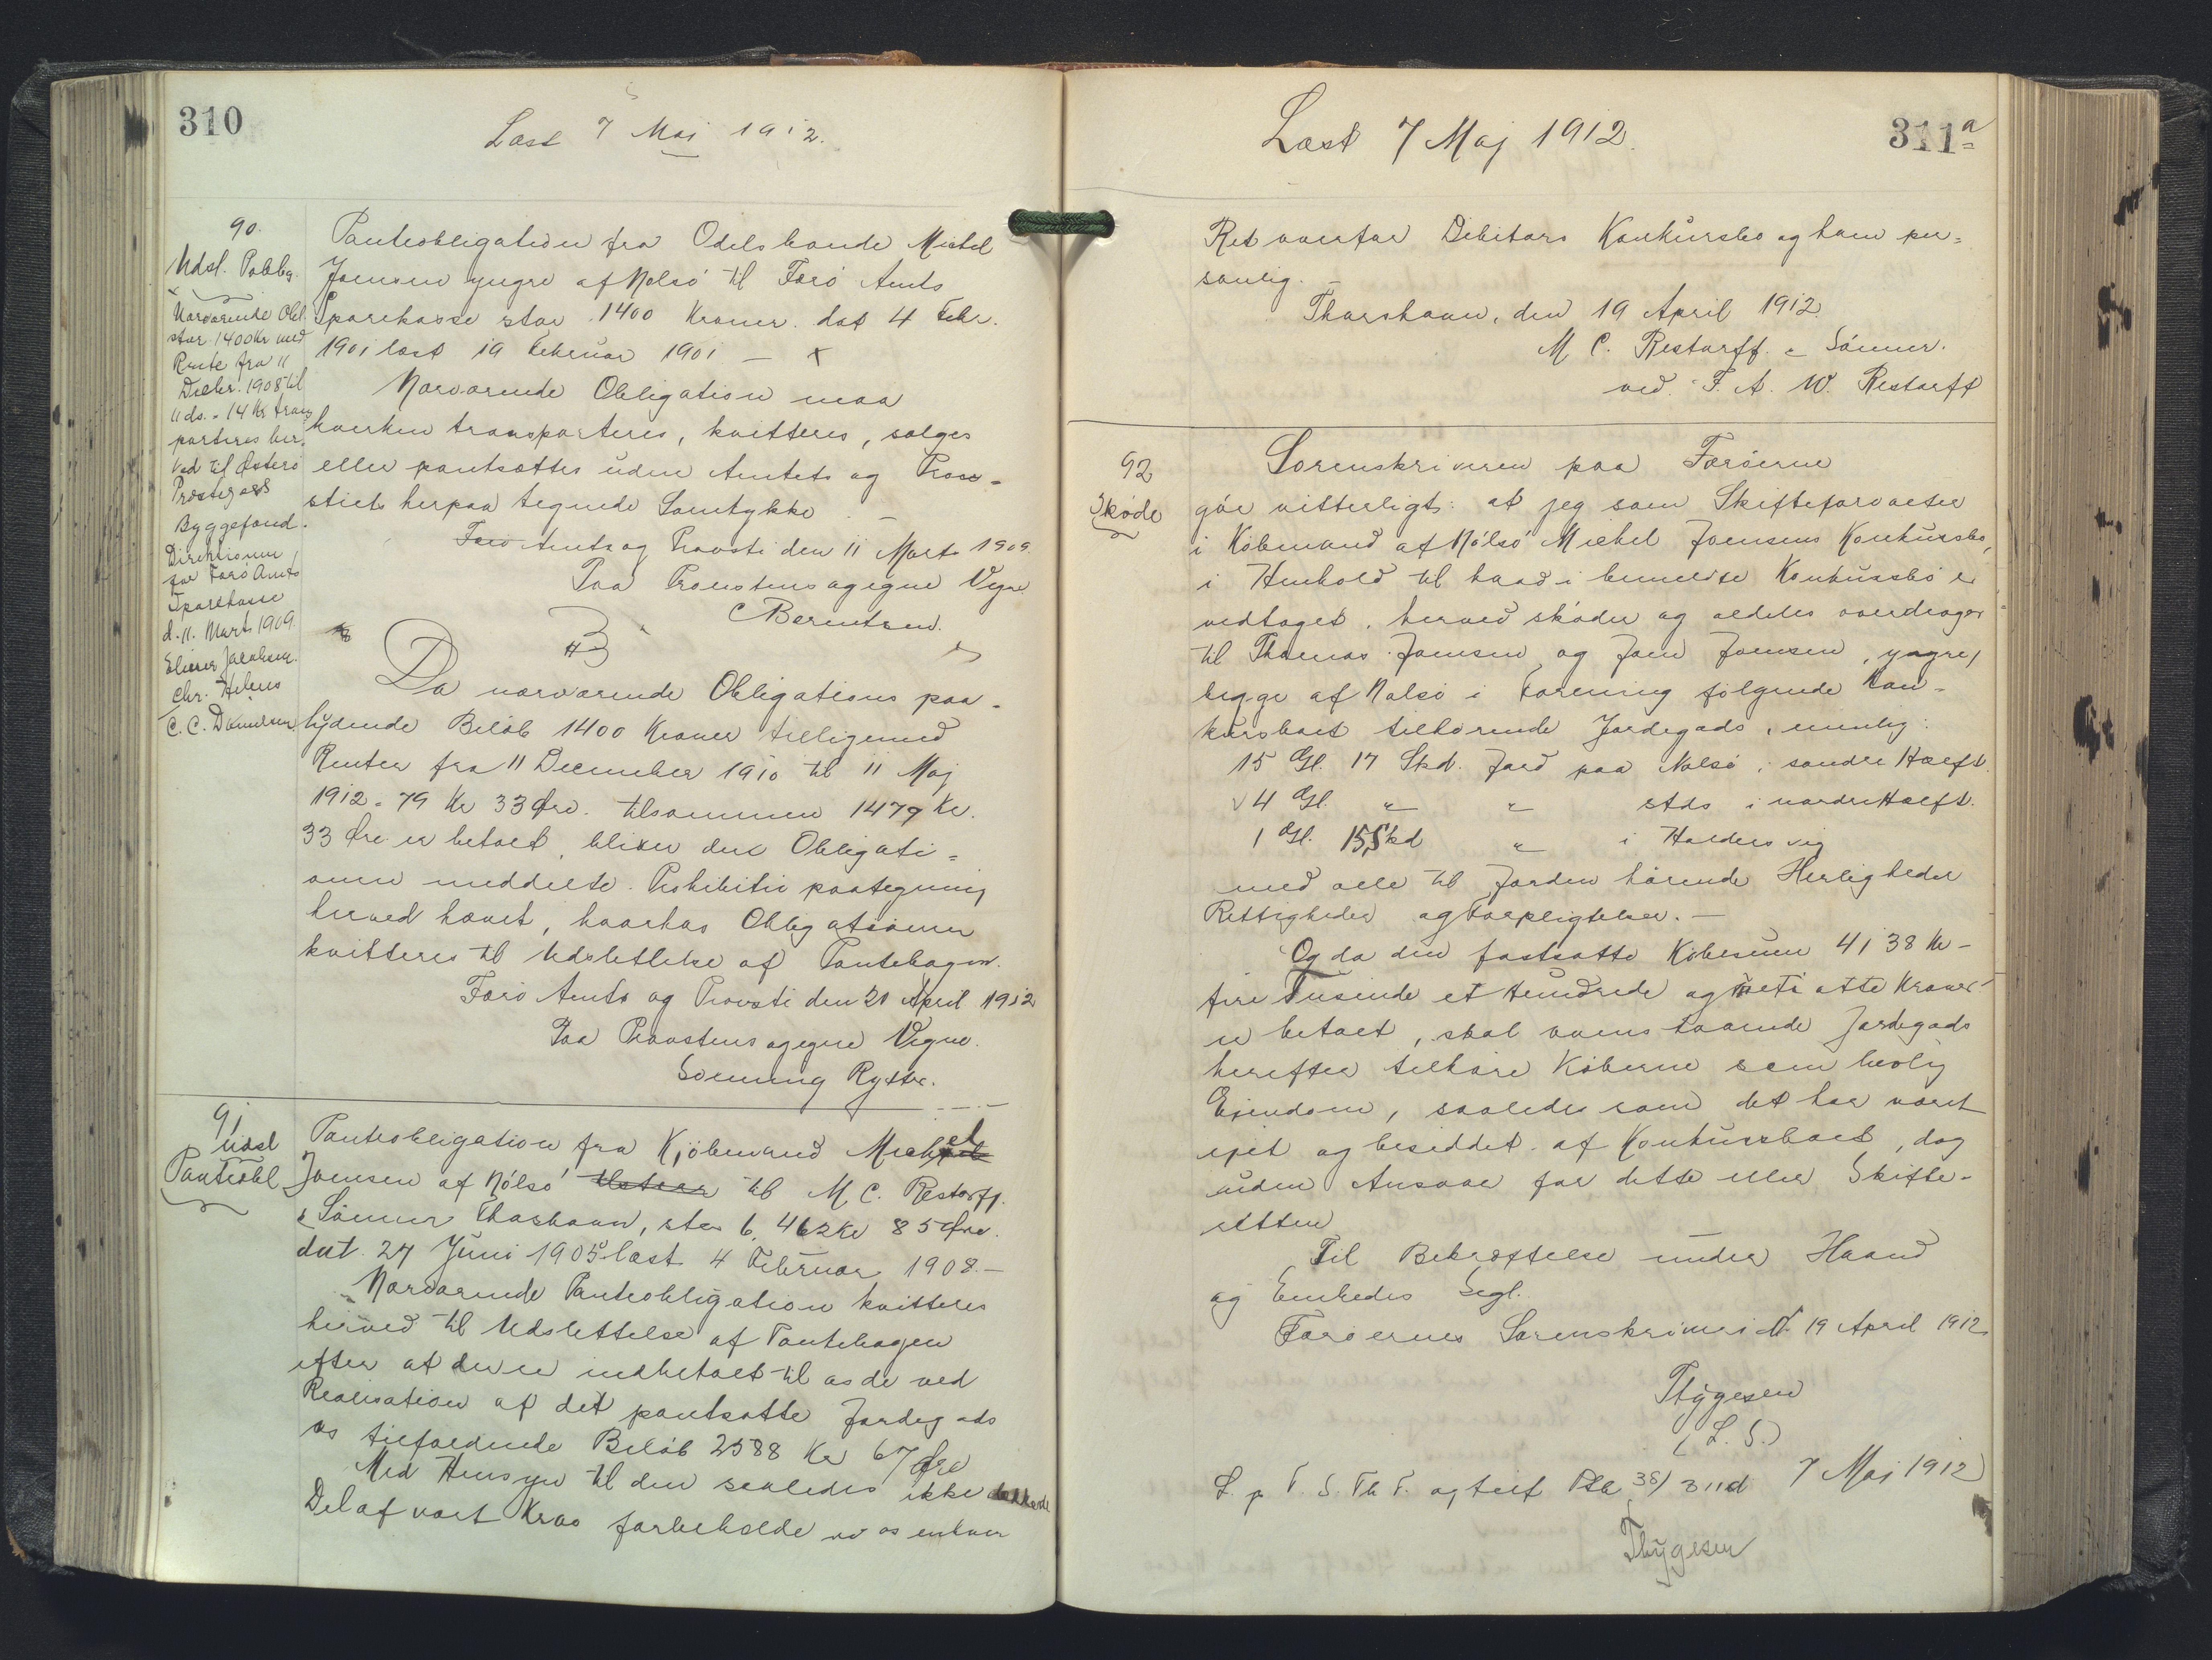 310
Læst 7 Maj 1912.
90.
Udsl. Pobbg.
x
Nærværende Obl.
stor 1400 Kr med
Rente fra 11
Decbr. 1908 til
11 ds. = 14 Kr trans
porteres her-
ved til Østerø
Præstegjælds
Byggefond.
Direktionen
for Færø Amts
Sparekasse
d. 11. Marts 1909.
Elieser Jacobsen.
Chr. Heleus
C. C. Danielsen
Panteobligation fra Odelsbonde Michel
Joensen yngre af Nolsö til Færö Amts
Sparekasse stor 1400 Kroner. dat 4 Febr.
1901 læst 19 Februar 1901 — x
Nærværende Obligation maa
hverken transporteres, kvitteres, sælges
eller pantsættes uden Amtets og Prov-
stiets herpaa tegnede Samtykke. —
Færö Amt og Provsti den 11 Marts 1909.
Paa Provstens og egne Vegne
C Berentsen.
Da nærværende Obligations paa-
lydende Beløb 1400 Kroner tilligemed
Renter fra 11 December 1910 til 11 Maj
1912 = 79 Kr 33 Øre. tilsammen 1479 Kr.
33 Øre er betalt, bliver den Obligati=
onen meddelte Prohibitivpaategning
herved hævet, hvorhos Obligationen
kvitteres til Udslettelse af Pantebogen.
Færö Amt og Provsti den 20 April 1912
Paa Provstens og egne Vegne.
Svenning Rytter.
91
Udsl
Panteobl
Panteobligation fra Kjöbmand Michel
Joensen af Nólsó til M. C. Restorff
& Sönner Thorshavn, stor 6,462 Kr 85 Øre.
dat. 27 Juni 1905 læst 4 Februar 1908.—
Nærværende Panteobligation kvitteres
herved til Udslettelse af Pantebogen
efter at der er indbetalt til os de ved
Realisation af det pantsatte Jordegods
os tilfaldende Beløb 2588 Kr 67 Øre
Med Hensyn til den saaledes ikke dækkede
Del af vort Krav forbeholde vi os enhver
Læst 7 Maj 1912.
311a
Ret overfor Debitors Konkursbo og ham per=
sonlig. —
Thorshavn, den 19 April 1912.
M C. Restorff & Sönner.
ved F. A. W. Restorff
92
Skøde
Sorenskriveren paa Færöerne
gör vitterligt: at jeg som Skifteforvalter
i Köbmand af Nólsó Michel Joensens Konkursbo,
i Henhold til hvad i bemeldte Konkursbo er
vedtaget, herved skøder og aldeles overdrager
til Thomas Joensen og Joen Joensen, yngre,
begge af Nolsö i Forening følgende Kon-
kursboet tilhörende Jordegods, nemlig:
15 Gl. 17 Skd. Jord paa Nolsö i søndre Hælft.
√ 4 Gl. " " stds i nordre Hælft.
1 Gl. 15 Skd " i Haldersvig
med alle til Jorden hörende Herligheder
Rettigheder og Forpligtelser. —
Og da den fastsatte Købesum 4138 Kr -
fire Tusinde et Hundrede og otte Kroner -
er betalt, skal ovenstaaende Jordegods
herefter tilhøre Køberne som lovlig
Ejendom, saaledes som det har været
ejet og besiddet af Konkursboet, dog
uden Ansvar for dette eller Skifte-
retten
Til Bekræftelse under Haand
og Embeds Segl.
Færöernes Sorenskriveri d. 19 April 1912
Thygesen
(L. S.)
L. p F. S. Th F. og 7 Maj 1912
Thygesen